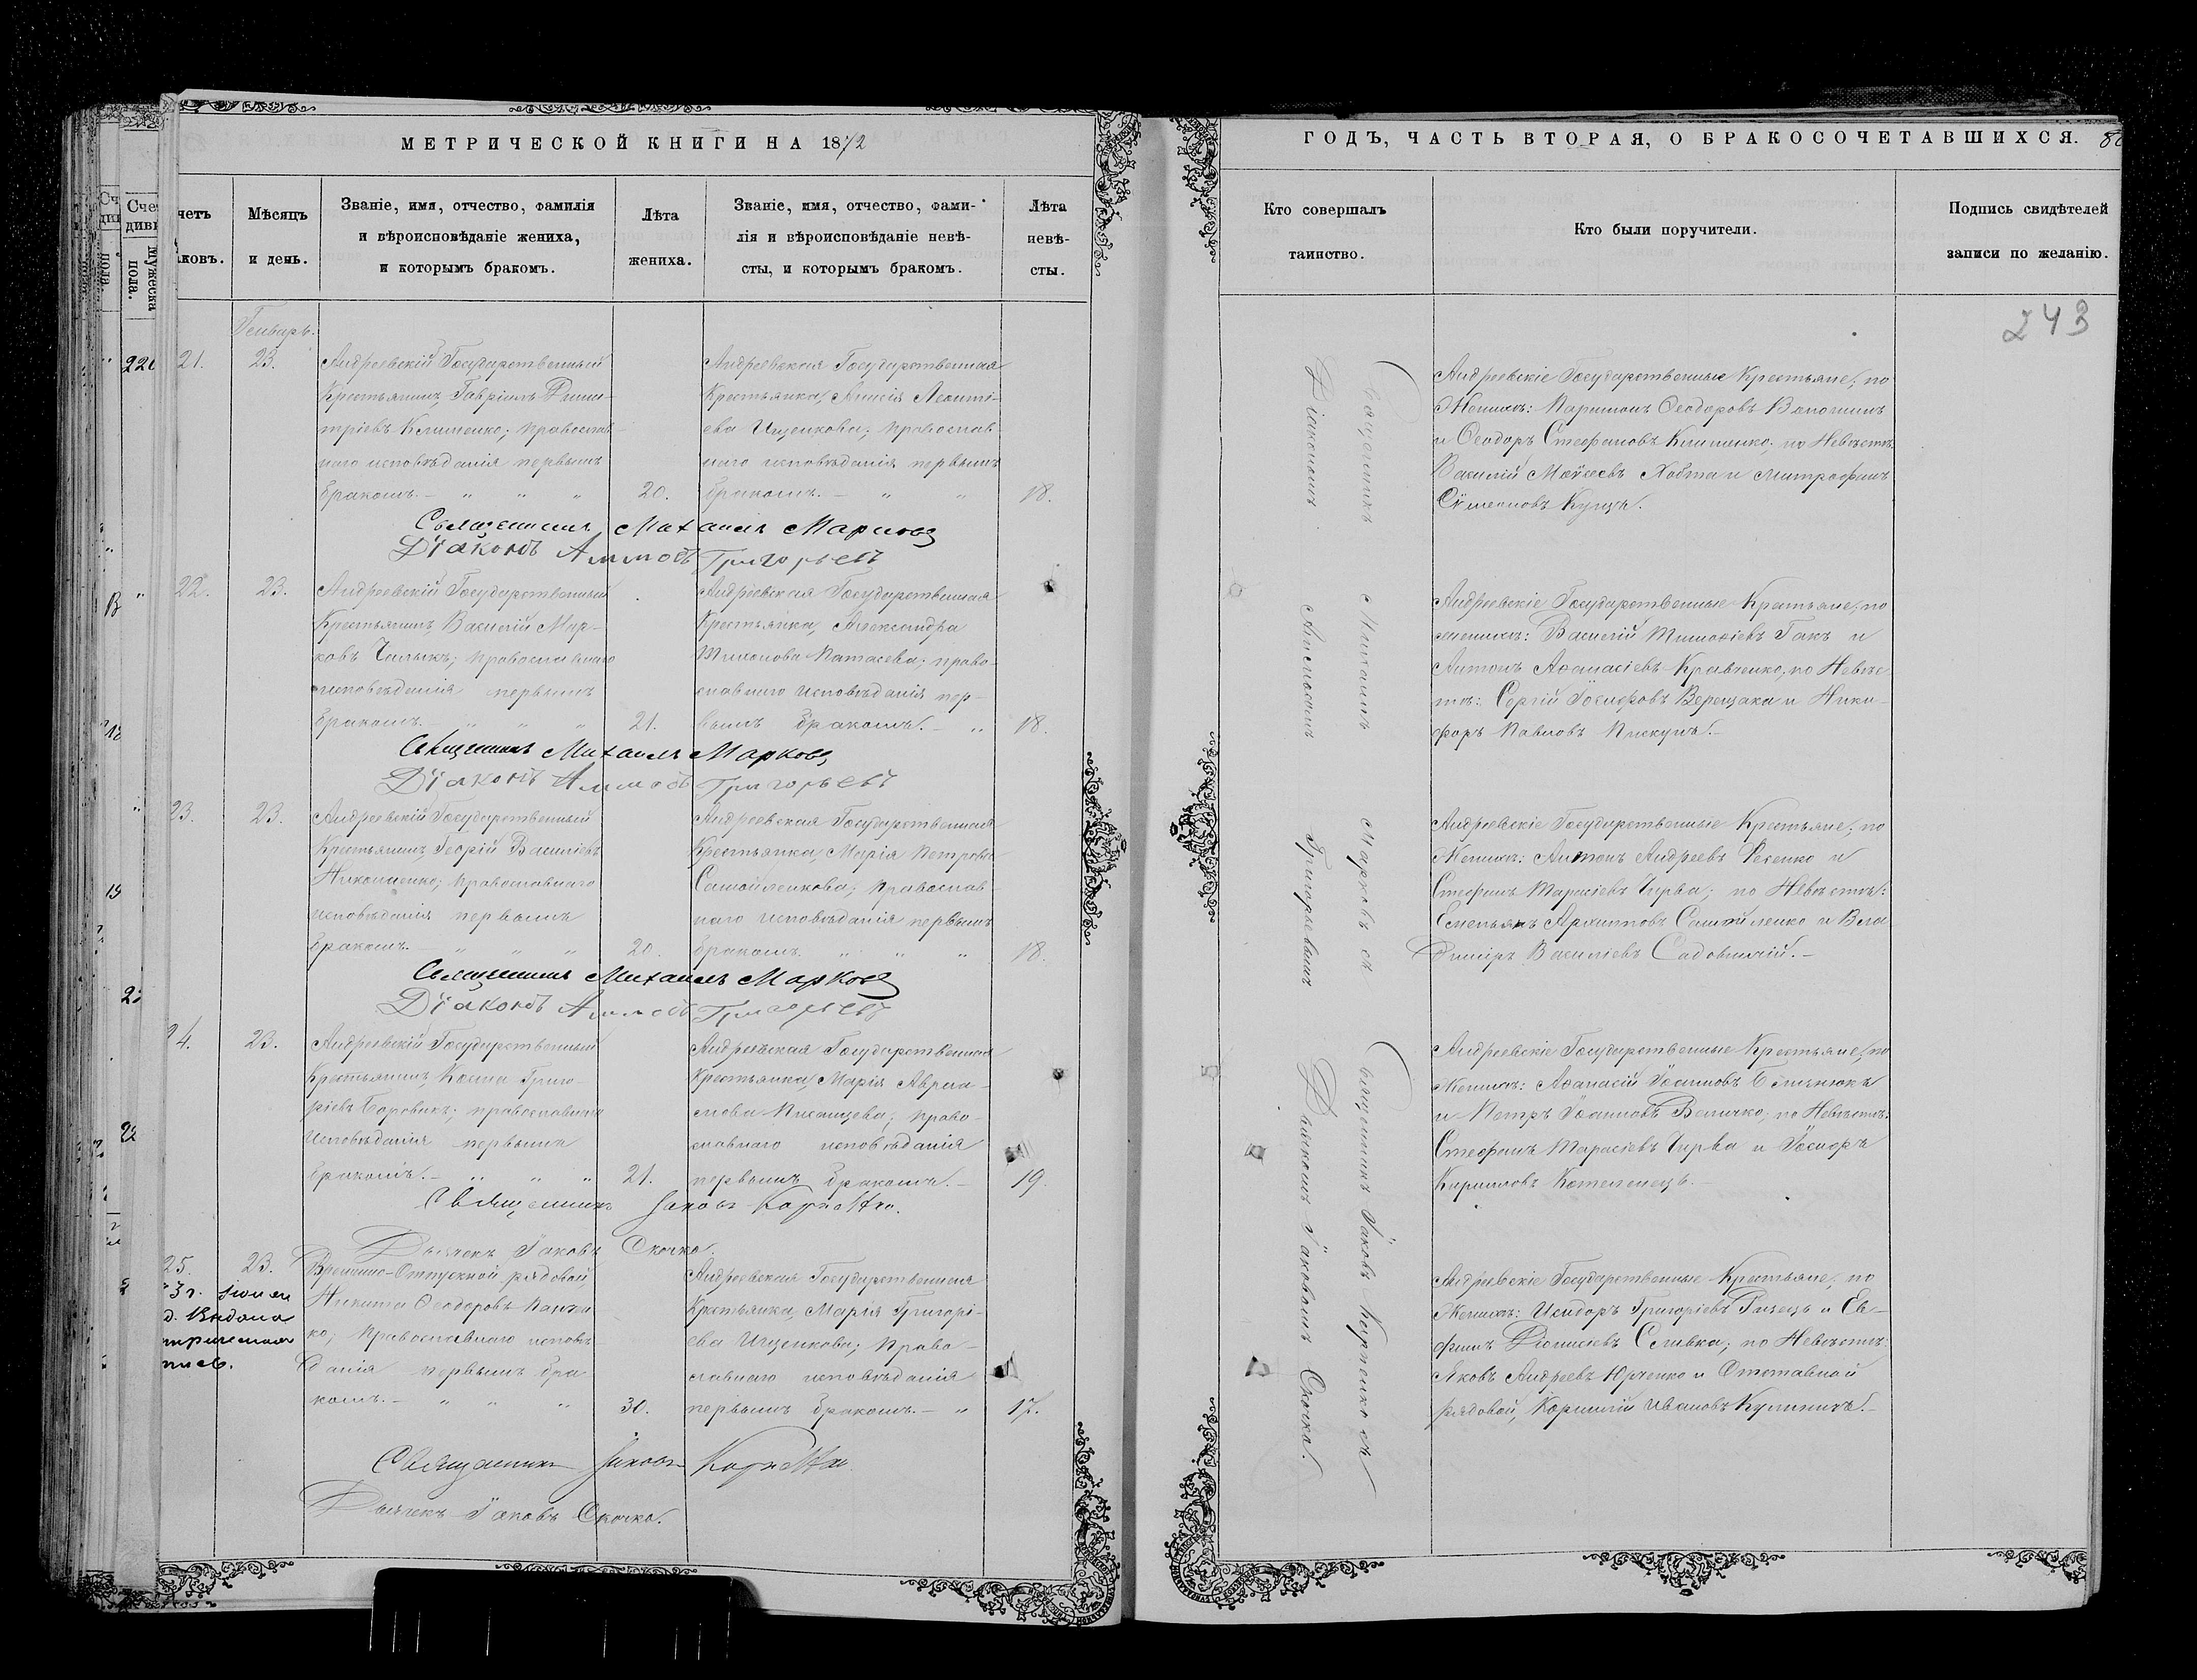 МЕТРИЧЕСКОЙ КНИГИ НА 1872
четъ
ковъ.
Мѣсяцъ
и день.
Званіе, имя, отчество, фамилія
и вѣроисповѣданіе жениха,
и которымъ бракомъ.
Лѣта
жениха.
Званіе, имя, отчество, фами-
лія и вѣроисповѣданіе невѣ-
сты, и которымъ бракомъ.
Лѣта
невѣ-
сты.
Генварь.
21.
23.
Андреевскій Государственный
Крестьянинъ, Гавріилъ Дими-
тріевъ Клименко; православ-
наго исповѣданія первымъ
бракомъ. – " " "
20.
Андреевская Государственная
Крестьянка, Анисія Леонті-
ева Ищенкова; православ-
наго исповѣданія первымъ
бракомъ. – " "
18.
Священникъ Михаилъ Марковъ
Діаконъ Григорьевъ
22.
23.
Андреевскій Государственный
Крестьянинъ, Василій Мар-
ковъ православнаго
исповѣданія первымъ
бракомъ. – " " "
21.
Андреевская Государственная
Крестьянка, Александра
Тихонова право-
славнаго исповѣданія пер-
вымъ бракомъ. – "
18.
Священникъ Михаилъ Марковъ
Діаконъ Григорьевъ
23.
23.
Андреевскій Государственный
Крестьянинъ, Георгій Василіевъ
православнаго
исповѣданія первымъ
бракомъ. – " " "
20.
Андреевская Государственная
Крестьянка, Марія Петрова
Самойленкова; православ-
наго исповѣданія первымъ
бракомъ. " " "
18.
Священникъ Михаилъ Марковъ
Діаконъ Григорьевъ
24.
23.
Андреевскій Государственный
Крестьянинъ, Косма Григо-
ріевъ Боровикъ; православнаго
исповѣданія первымъ
бракомъ. – " " "
21.
Андреевская Государственная
Крестьянка, Марія Авраа-
мова право-
славнаго исповѣданія
первымъ бракомъ. –
19.
Священникъ Іаковъ Карпенко.
Дьячекъ Іаковъ Скочко.
25.
23.
Временно-Отпускной рядовой,
Никита Ѳеодоровъ Панчен-
ко; Православнаго исповѣ-
данія первымъ бра-
комъ. – " " "
30.
Андреевская Государственная
Крестьянка, Марія Григорі-
ева Ищенкова; Право-
славнаго исповѣданія
первымъ бракомъ. – "
17.
Священникъ Іаковъ Карпенко
Дьячекъ Іаковъ Скочко.
ГОДЪ, ЧАСТЬ ВТОРАЯ, О БРАКОСОЧЕТАВШИХСЯ.
Кто совершалъ
таинство.
Кто были поручители.
Подпись свидѣтелей
записи по желанію.
243
Священникъ Михаилъ Марковъ съ
Діакономъ Григорьевымъ
Андреевскіе Государственные Крестьяне; по
Женихѣ: Ѳеодоровъ
и Ѳеодоръ Стефановъ Клименко; по Невѣстѣ
Василій Моѵсеевъ и Митрофанъ
Сѵмеоновъ Куцъ.
Андреевскіе Государственные Крестьяне, по
женихѣ: Василій Гакъ и
Антонъ Аѳанасіевъ Кравченко, по Невѣс-
тѣ: Сергій Іосифовъ Верещака и Ники-
форъ Павловъ Пискунъ. –
Андреевскіе Государственные Крестьяне; по
Женихѣ: Антонъ Андреевъ и
Стефанъ Тарасіевъ Чирва; по Невѣстѣ:
Емельянъ Архипповъ Самойленко и Вла-
диміръ Василіевъ Садовничій. –
Священникъ Іаковъ Карпенко съ
Дьячкомъ Іаковомъ Скочко.
Андреевскіе Государственные Крестьяне, по
Женихѣ: Аѳанасій Іоанновъ
и Петръ Іоанновъ Величко; по Невѣстѣ:
Стефанъ Тарасіевъ Чирва и Іосифъ
Кирилловъ Котелевецъ. –
Андреевскіе Государственные Крестьяне, по
Женихѣ: Исидоръ Григоріевъ и Ев-
фимъ Діонисіевъ Сливка; по Невѣстѣ:
Яковъ Андреевъ Юрченко и Отставной
рядовой, Корнилій Ивановъ Кулиничъ. –